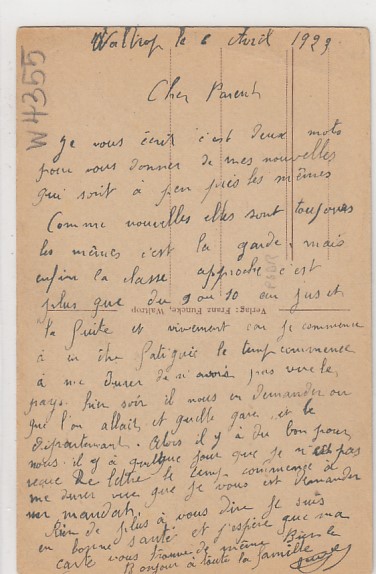 Waltrop le 6 Avril 1923
W4355
Cher Parents
Je vous écrit c'est deux mots
pour vous donner de mes nouvelles
qui soit à peu près les mêmes
Comme nouvelles elles sont toujours
les mêmes c'est la garde, mais
enfin la classe approche c'est
plus que du 9 au 10 au jus et
Verlag: Franz Funcke, Waltrop
la fuite et vivement car je commence
à en être fatiguié le temp commence
à me durer de n'avois pas vue le
pays. hier soir il nous en demander ou
que l'on allait et quelle gare et le
département. Alors il y à du bon pour
nous il y à quelque jour que je n'est pas
reçue de lettre le temp commence à
me durer vue que je vous est demander
un mandat.
Rien de plus à vous dire je suis
en bonne santé et j'espère que ma
carte vous trouve de même Bien le
Bonjour à toute la famille